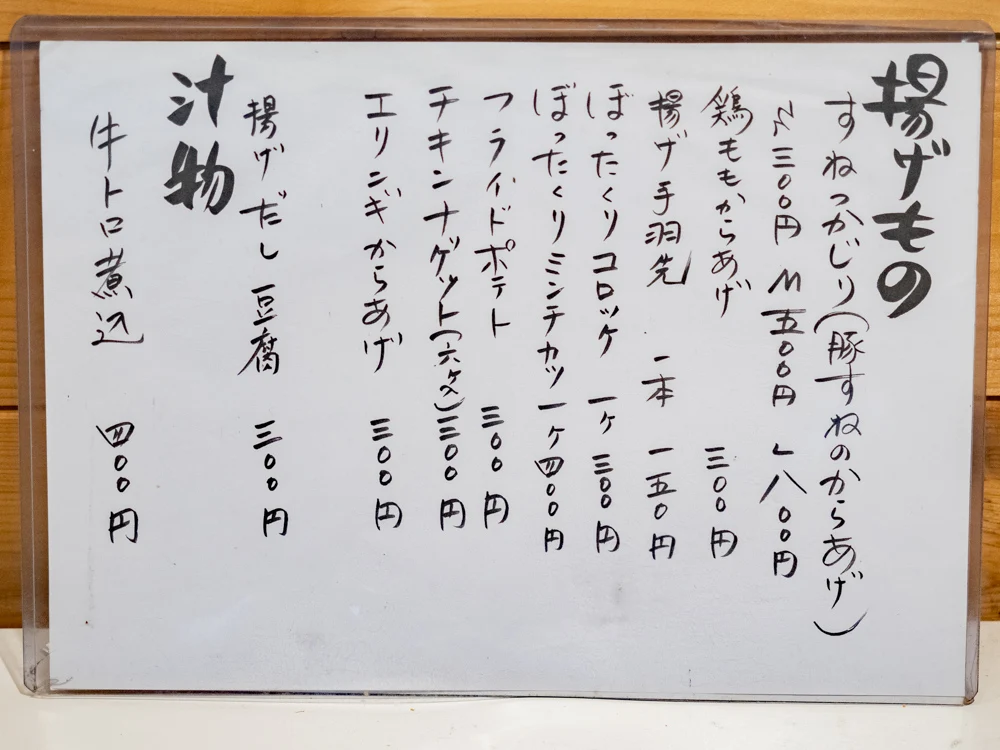 揚げもの
すねっかじり(豚すねのからあげ)
S 三〇〇円 M 五〇〇円 L 八〇〇円
鶏ももからあげ 三〇〇円
揚げ手羽先 一本 一五〇円
ぼったくりコロッケ 一ヶ 三〇〇円
ぼったくりミンチカツ 一ヶ 四〇〇円
フライドポテト 三〇〇円
チキンナゲット(六ヶ入) 三〇〇円
エリンギからあげ 三〇〇円
揚げだし豆腐 三〇〇円
汁物
牛トロ煮込 四〇〇円